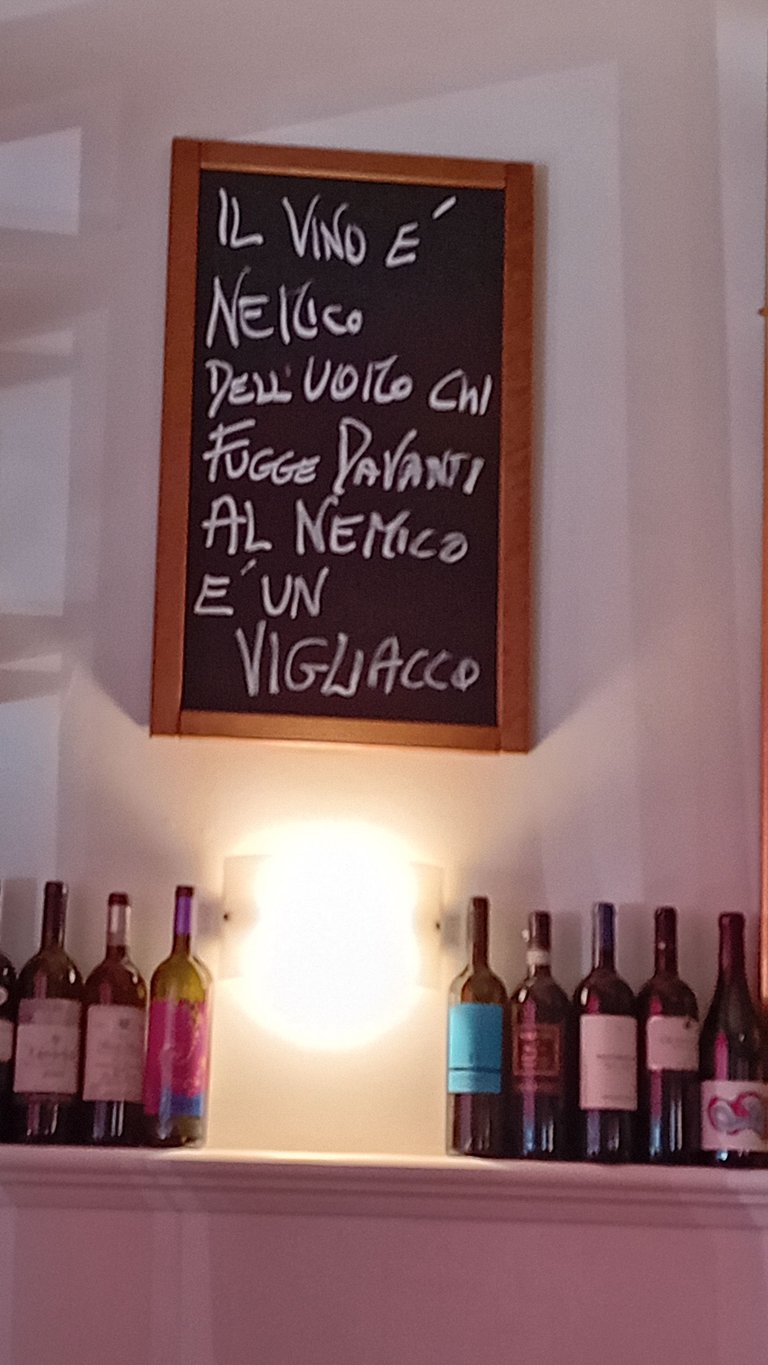 IL VINO E´
NEMICO
DELL'UOMO CHI
FUGGE DAVANTI
AL NEMICO
E´ UN
VIGLIACCO